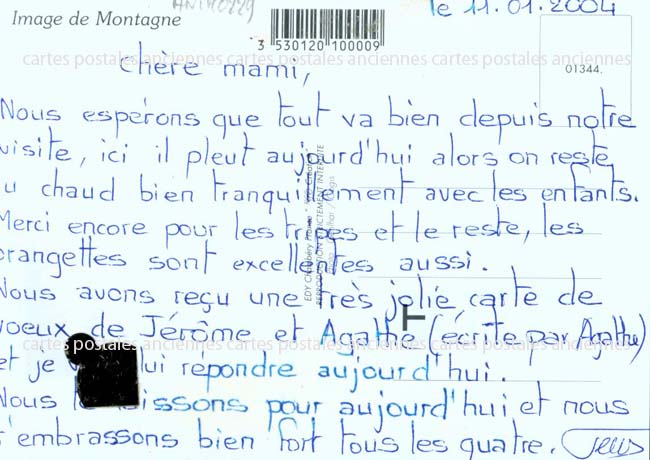 Image de Montagne
le 11.01.2004
3 530120 100009
01344.
cartes postales anciennes cartes postales anciennes cartes postales anciennes
Chère mami,
Nous espérons que tout va bien depuis notre
visite, ici il pleut aujourd'hui alors on reste
au chaud bien tranquillement avec les enfants.
Merci encore pour les tripes et le reste, les
orangettes sont excellentes aussi.
Nous avons reçu une très jolie carte de
voeux de Jérôme et Agathe (écrite par Agathe)
cartes postales anciennes cartes postales anciennes cartes postales anciennes
et je lui répondre aujourd'hui.
Nous laissons pour aujourd'hui et nous
t'embrassons bien fort tous les quatre.